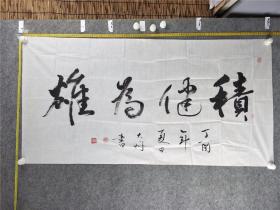 積健為雄
丁酉
年
夏日
書